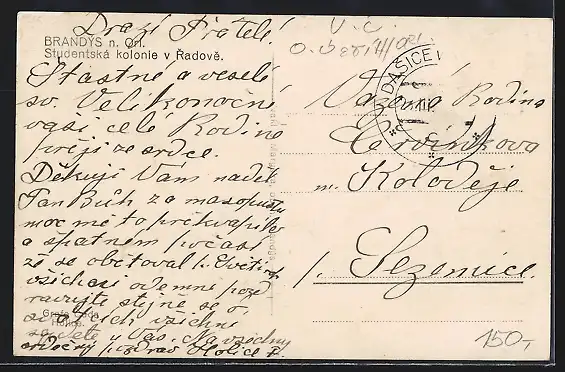 Drazí Přatelé!
BRANDÝS n. Orl.
Studentská kolonie v Řadově.
Štastné a veselé
sv. Velikonoční
vaší celé Rodině
přeji ze srdce.
Děkuji Vam nadel
Pan Bůh za masopustu
moc mě to překvapilo
a špatném počasí
že se obětoval p.
všichni odemně pozd
ravujte stejně se o.
všichni
u Vas. Na všechny
srdečný pozdrav Holice P.
V. C.
DAŠICE
Važená Rodina
Červinkova
m. Koloděje
p. Sezemice.
150,-